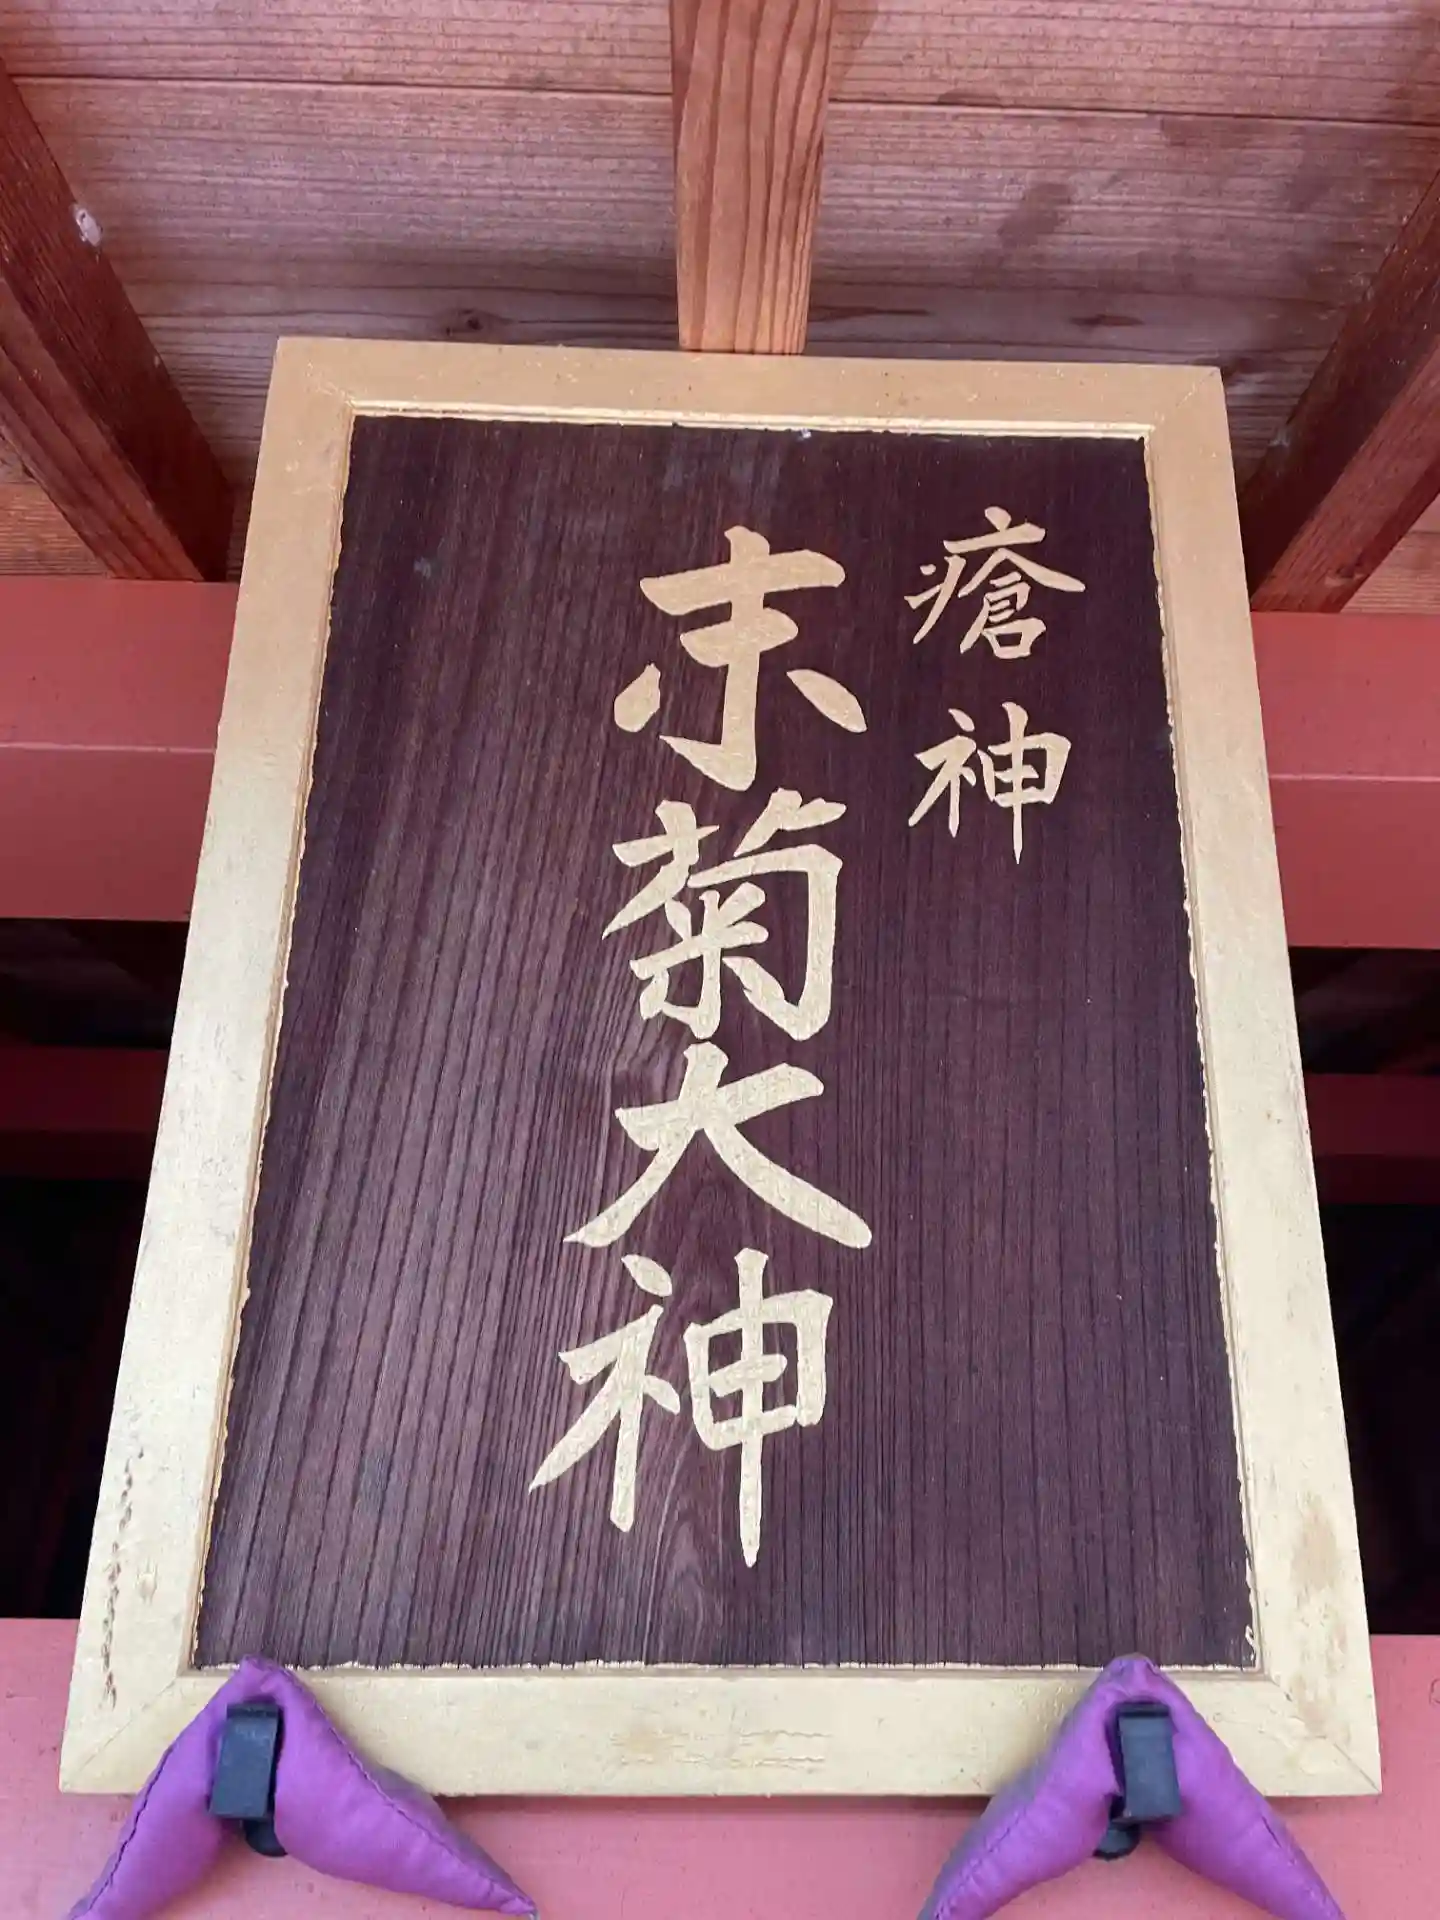 瘡神
末菊大神